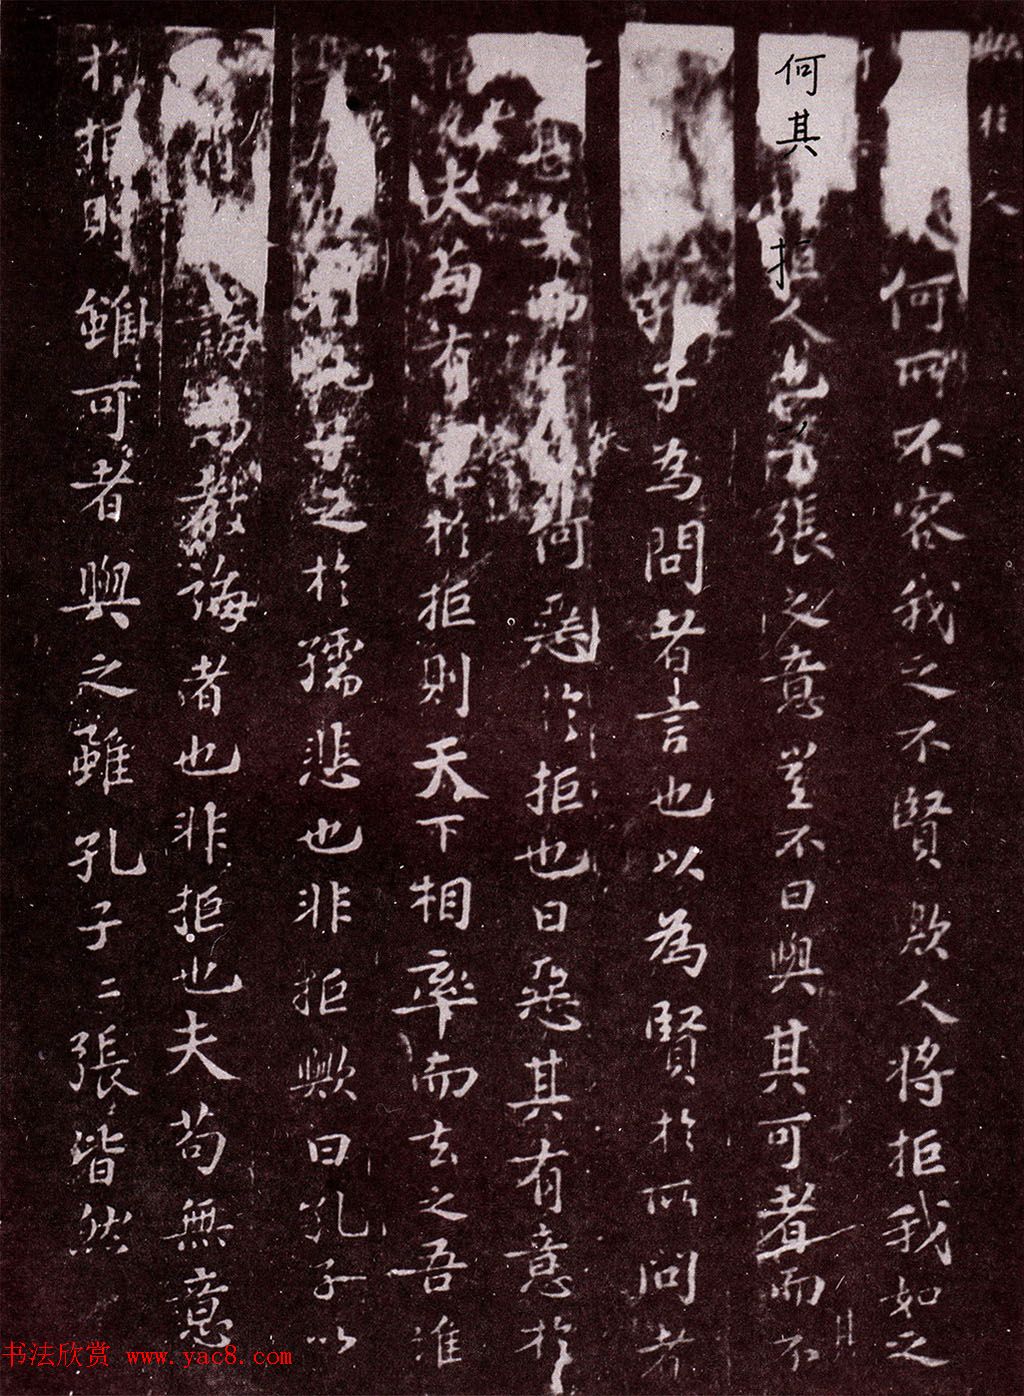 何所不容我之不賢歟人將拒我如之
何其拒人也子張之意豈不曰與其可者而不
孔子為問者言也以為賢於所問者
何惡於拒也曰惡其有意於
夫苟有於拒則天下相率而去之吾誰
孔子之於孺悲也非拒歟曰孔子以
誨為教誨者也非拒也夫苟無意
於拒則雖可者與之雖孔子二張皆然
书法欣赏 www.yac8.com